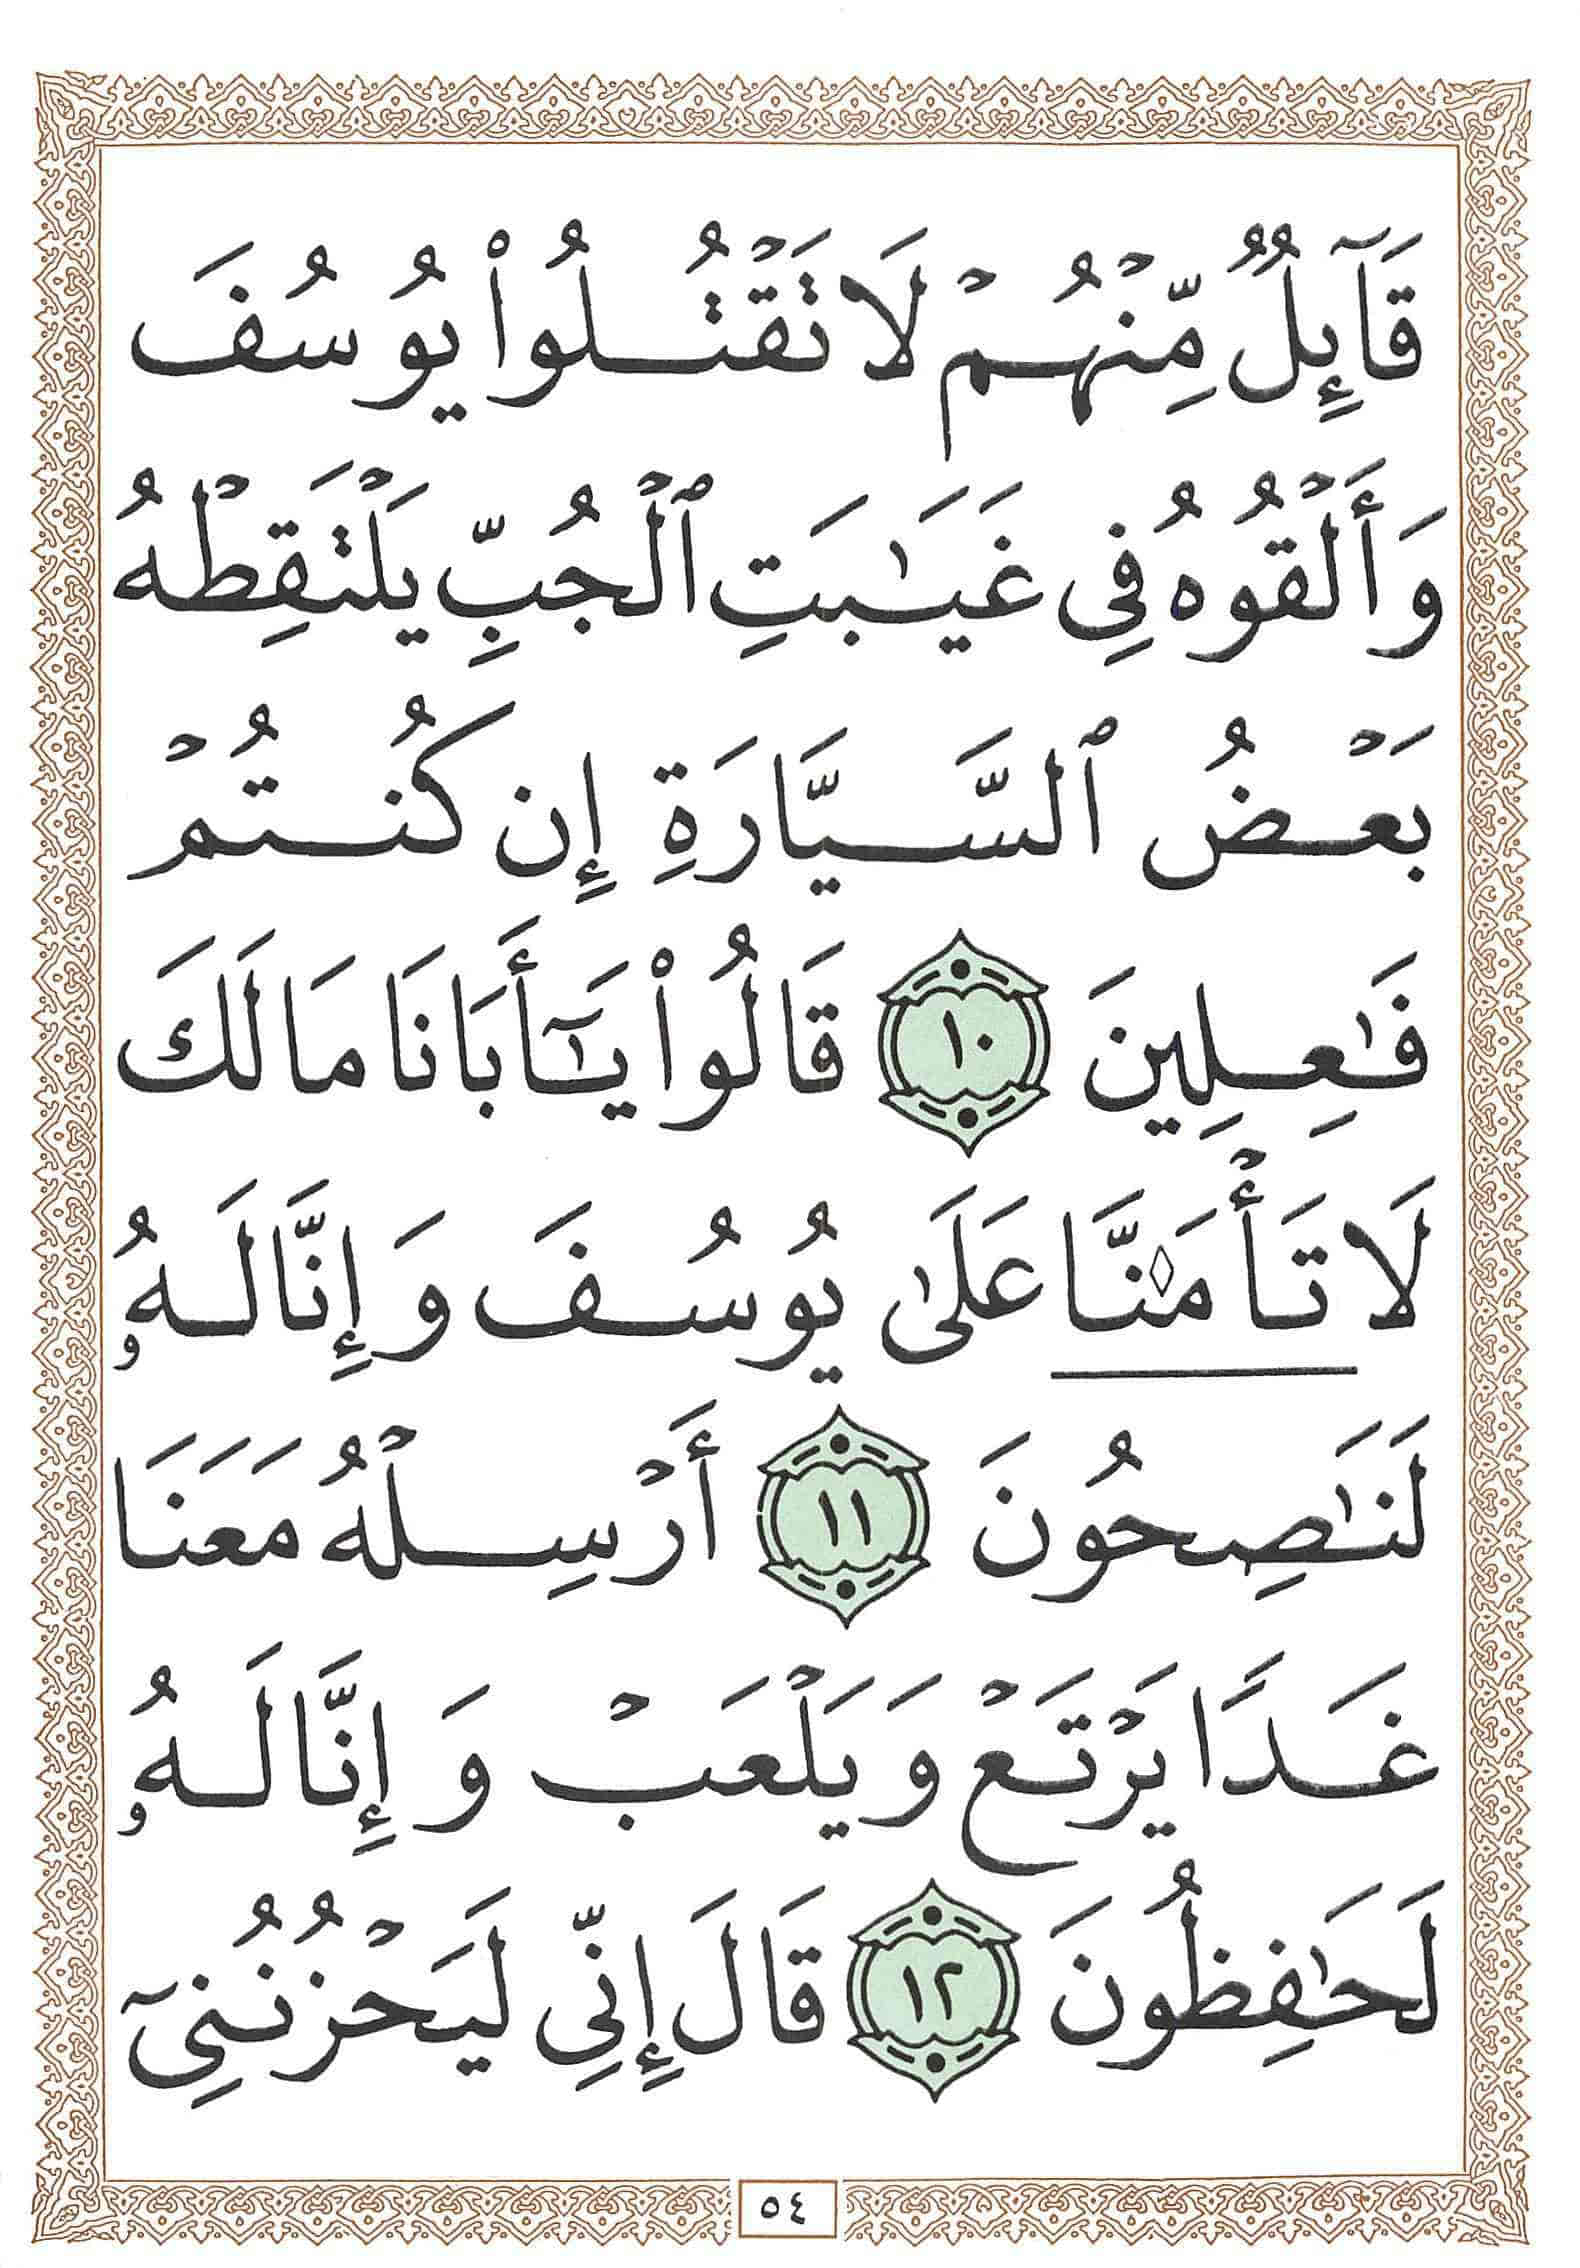 قَآئِلٌ مِّنْهُمْ لَا تَقْتُلُوا۟ يُوسُفَ
وَأَلْقُوهُ فِى غَيَـٰبَتِ ٱلْجُبِّ يَلْتَقِطْهُ
بَعْضُ ٱلسَّيَّارَةِ إِن كُنتُمْ
فَـٰعِلِينَ ١٠ قَالُوا۟ يَـٰٓأَبَانَا مَا لَكَ
لَا تَأْمَ۫نَّا عَلَىٰ يُوسُفَ وَإِنَّا لَهُۥ
لَنَـٰصِحُونَ ١١ أَرْسِلْهُ مَعَنَا
غَدًا يَرْتَعْ وَيَلْعَبْ وَإِنَّا لَهُۥ
لَحَـٰفِظُونَ ١٢ قَالَ إِنِّى لَيَحْزُنُنِىٓ
٥٤